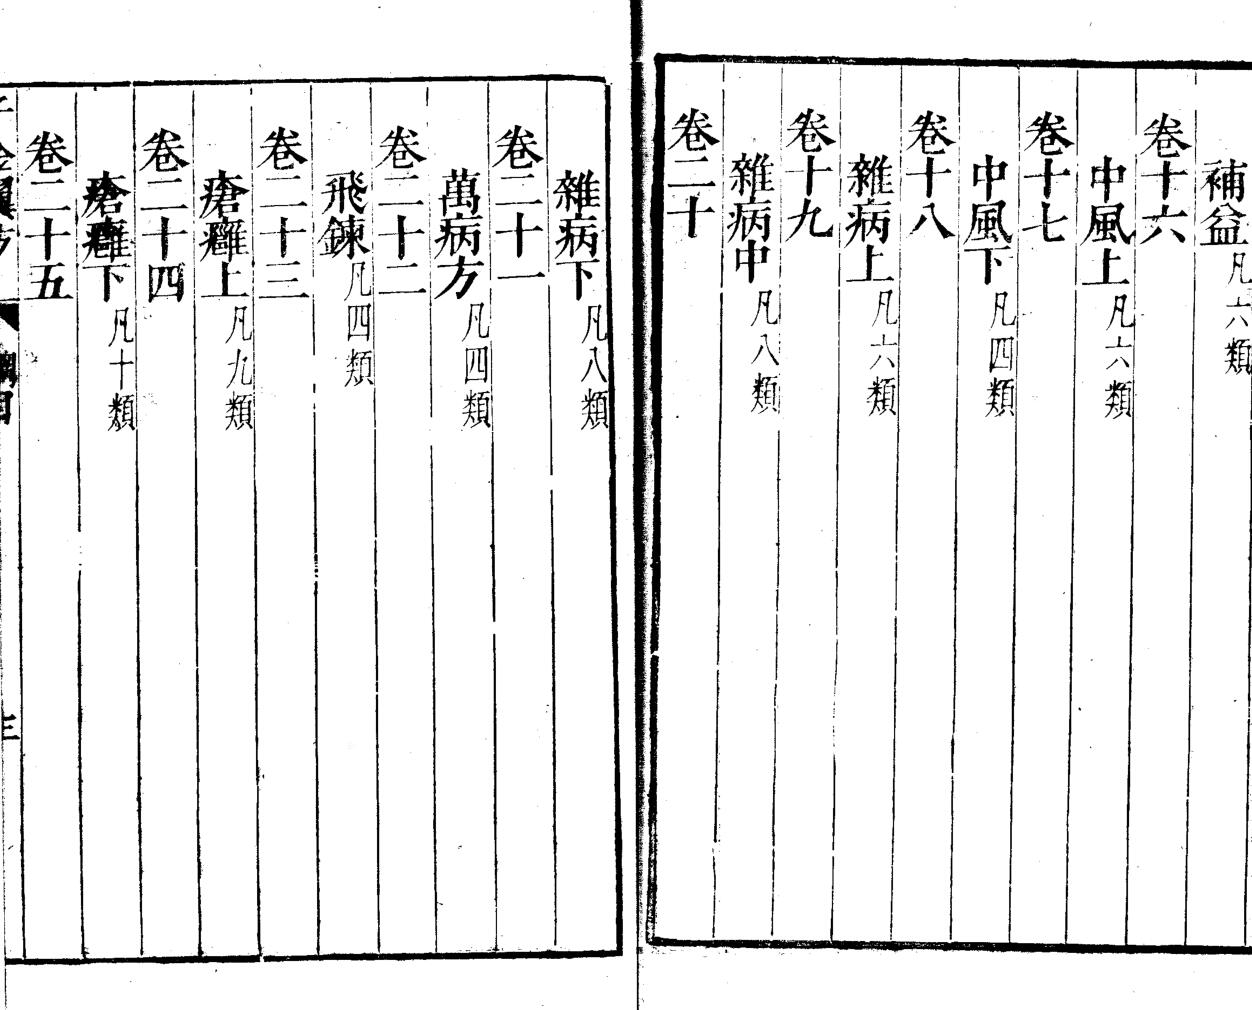 補益凡六類
卷十六
中風上凡六類
卷十七
中風下凡四類
卷十八
雜病上凡六類
卷十九
雜病中凡八類
卷二十
雜病下凡八類
卷二十一
萬病方凡四類
卷二十二
飛鍊凡四類
卷二十三
瘡癰上凡九類
卷二十四
瘡癰下凡十類
卷二十五
千金翼方 綱目 三